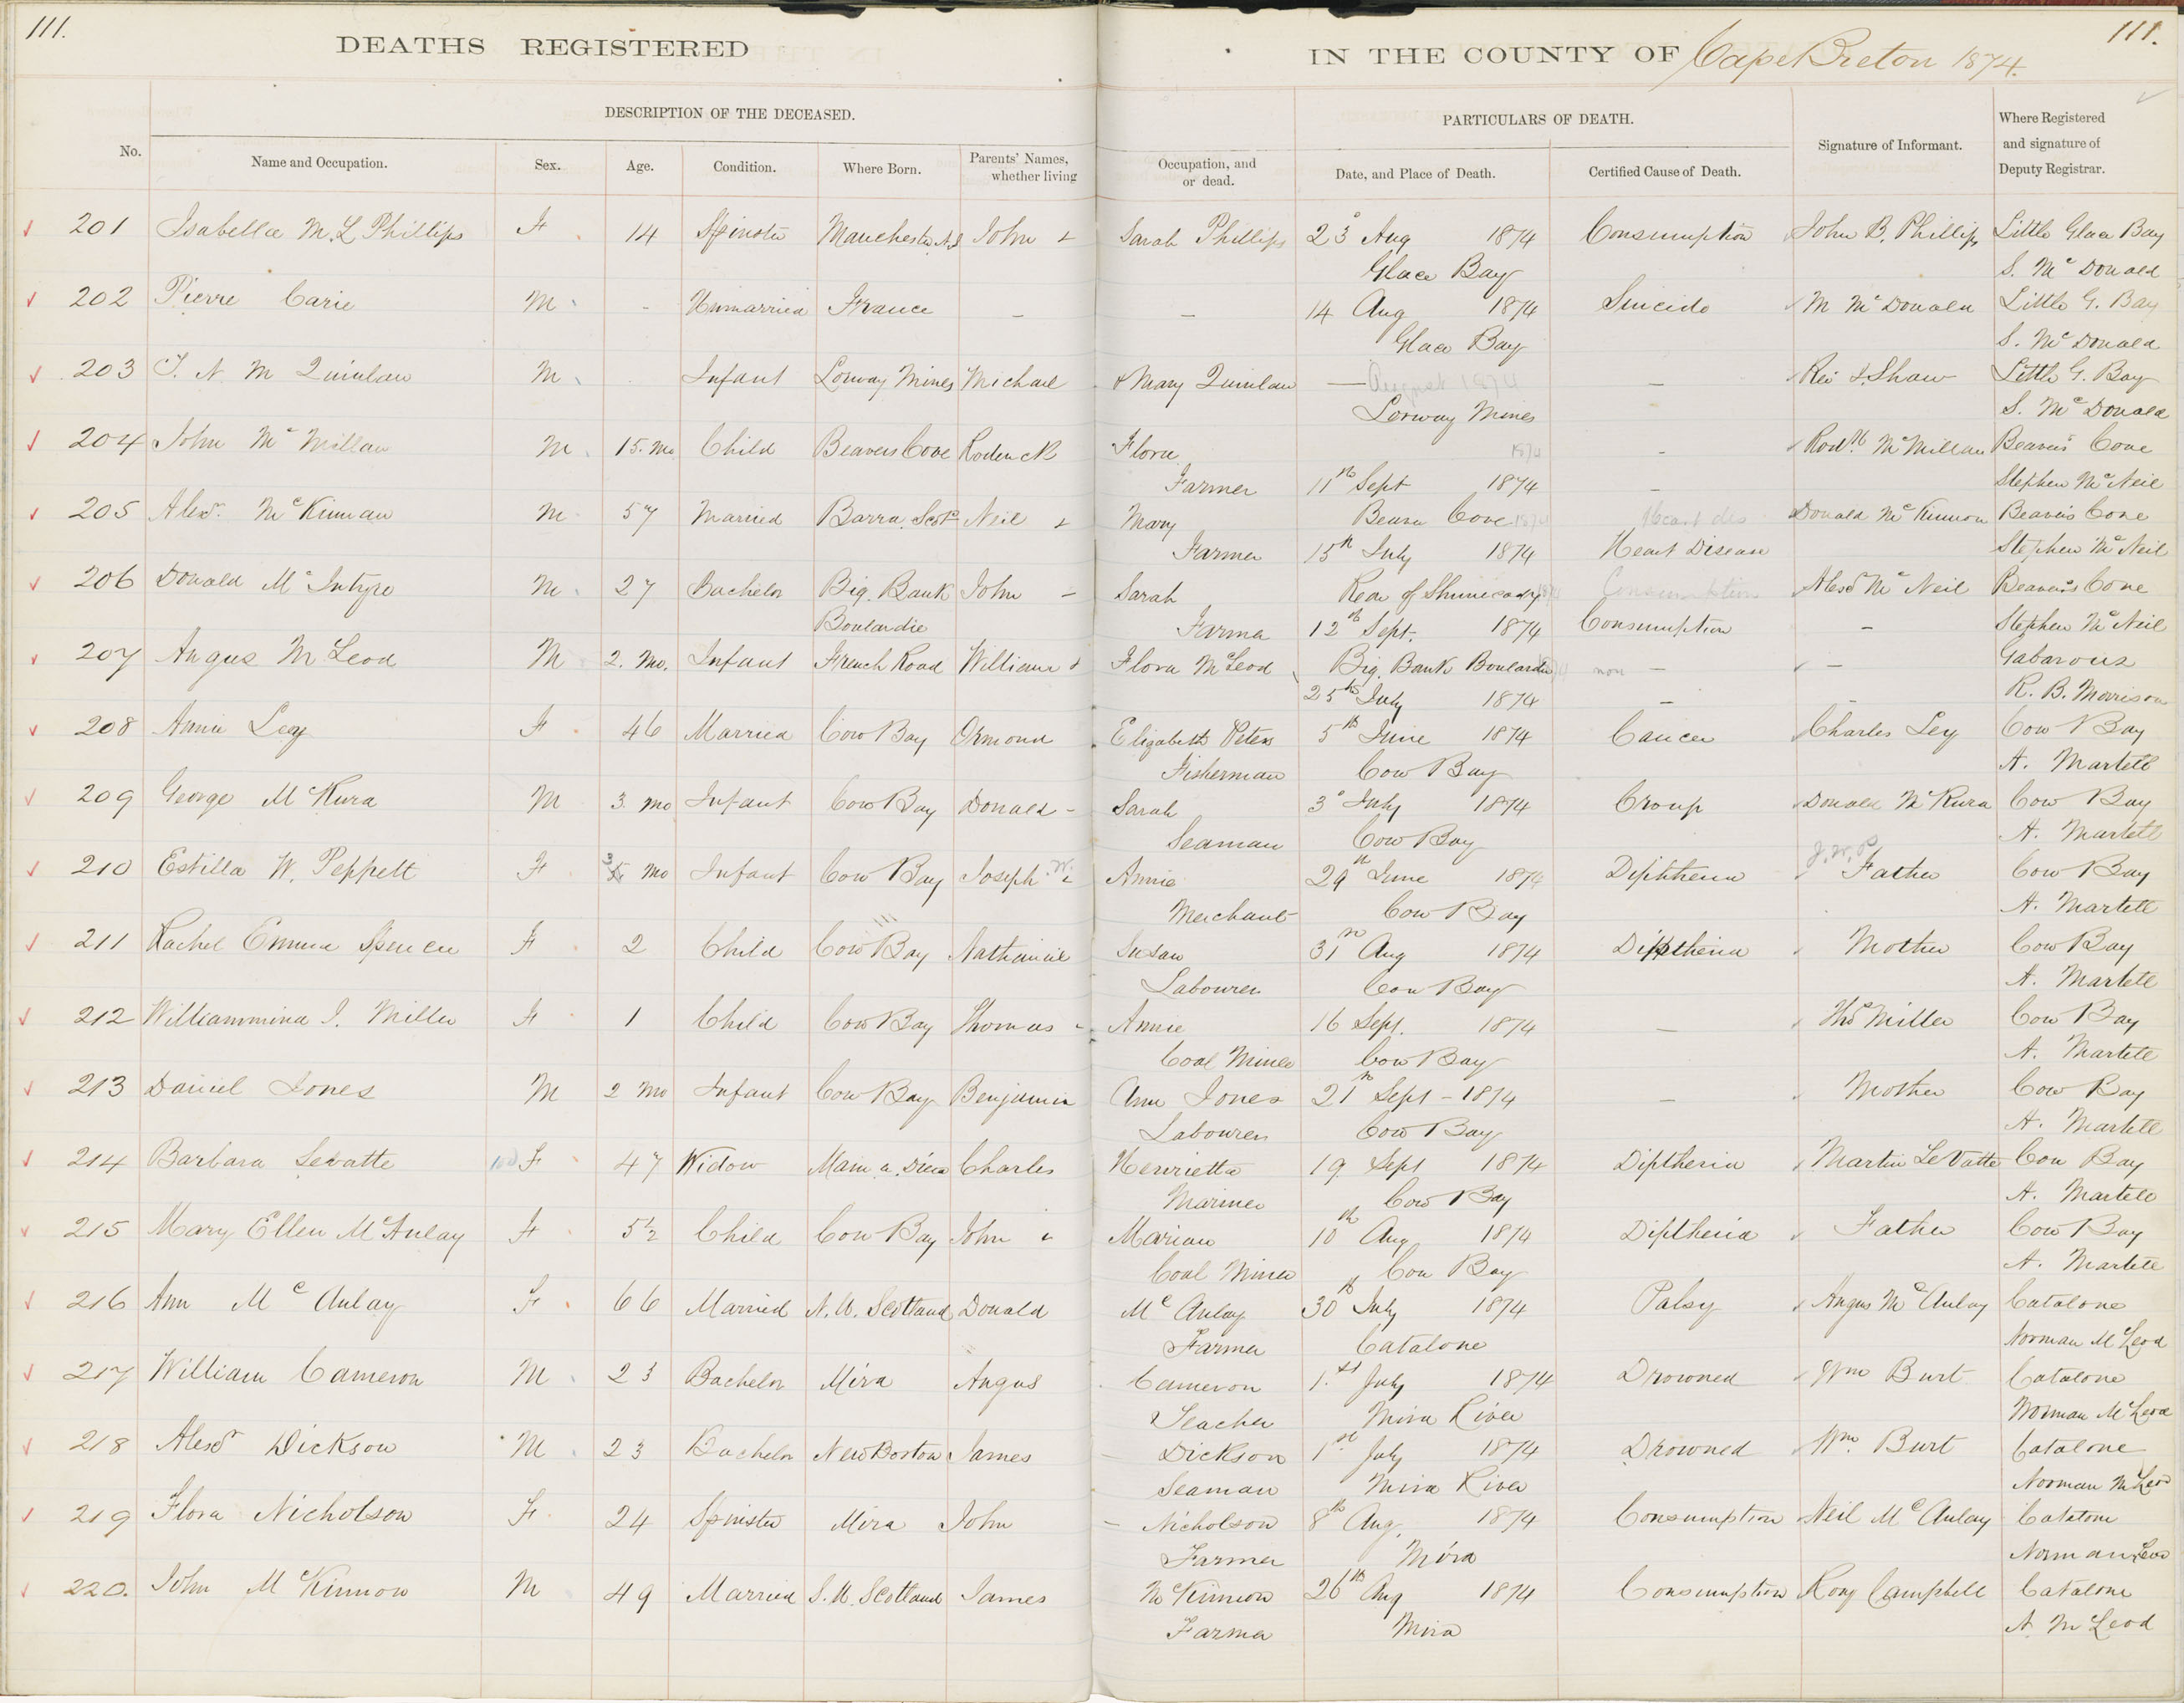 111.
DEATHS REGISTERED IN THE COUNTY OF Cape Breton 1874.
111.
DESCRIPTION OF THE DECEASED. PARTICULARS OF DEATH.
No. Name and Occupation. Sex. Age. Condition. Where Born. Parents' Names, whether living Occupation, and or dead. Date, and Place of Death. Certified Cause of Death. Signature of Informant. Where Registered and signature of Deputy Registrar.
201 Isabella M. L Phillips F 14 Spinster Manchester N.S John & Sarah Phillips 23 Aug 1874 Consumption John B. Phillips Little Glace Bay
Glace Bay S. McDonald
202 Pierre Carie M - Unmarried France - - 14 Aug 1874 Suicide M McDonald Little G. Bay
Glace Bay S. McDonald
203 J. N M Quinlan M Infant Lorway Mines Michael & Mary Quinlan — August 1874 - Rev J. Shaw Little G. Bay
Lorway Mines S. McDonald
204 John McMillan M 15. Mo Child Beavers Cove Roderick Flora 1874 - Rodk McMillan Beavers Cove
Farmer 11th Sept 1874 - Stephen McNeil
205 Alexr. McKinnan M 57 Married Barra. Scot Neil & Mary Beaver Cove 1874 Heart dis Donald McKinnon Beavers Cove
Farmer 15th July 1874 Heart Disease Stephen McNeil
206 Donald McIntyre M 27 Bachelor Big. Bank John - Sarah Rear of Shunecady Consumption Alexr McNeil Beavers Cove
Boulardie Farmer 12th Sept. 1874 Consumption - Stephen McNeil
207 Angus McLeod M 2. Mo. Infant French Road William & Flora McLeod Big. Bank Boulardie non - - Gabarous
25th July 1874 - - R. B. Morrison
208 Annie Ley F 46 Married Cow Bay Ormond Elizabeth Peters 5th June 1874 Cancer Charles Ley Cow Bay
Fisherman Cow Bay A. Martell
209 George McKura M 3 Mo Infant Cow Bay Donald - Sarah 3 July 1874 Croup Donald McKura Cow Bay
Seaman Cow Bay A. Martell
210 Estilla W. Peppett F 3 Mo Infant Cow Bay Joseph W. & Annie 29th June 1874 Diphtheria J. W. P Father Cow Bay
Merchant Cow Bay A. Martell
211 Rachel Emma Spencer F 2 Child Cow Bay Nathaniel Susan 31 Aug 1874 Diptheria Mother Cow Bay
Labourer Cow Bay A. Martell
212 Williammina I. Miller F 1 Child Cow Bay Thomas & Annie 16 Sept. 1874 - Thos Miller Cow Bay
Coal Miner Cow Bay A. Martell
213 Daniel Jones M 2 Mo Infant Cow Bay Benjamin Ann Jones 21 Sept - 1874 - Mother Cow Bay
Labourer Cow Bay A. Martell
214 Barbara Levatte F 47 Widow Main a. Dieu Charles Henrietta 19 Sept 1874 Diptheria Martin LeVatte Cow Bay
Mariner Cow Bay A. Martell
215 Mary Ellen McAulay F 5½ Child Cow Bay John & Marian 10th Aug 1874 Diptheria Father Cow Bay
Coal Miner Cow Bay A. Martell
216 Ann McAulay F 66 Married N. U. Scotland Donald McAulay 30th July 1874 Palsy Angus McAulay Catalone
Farmer Catalone Norman McLeod
217 William Cameron M 23 Bachelor Mira Angus Cameron 1.st July 1874 Drowned Wm Burt Catalone
Teacher Mira River Norman McLeod
218 Alexr Dickson M 23 Bachelor New Boston James Dickson 1st July 1874 Drowned Wm. Burt Catalone
Seaman Mira River Norman McLeod
219 Flora Nicholson F 24 Spinster Mira John - Nicholson 8th Aug. 1874 Consumption Neil McAulay Catalone
Farmer Mira Norman McLeod
220. John McKinnon M 49 Married S. U. Scotland James McKinnon 26th Aug 1874 Consumption Rory Campbell Catalone
Farmer Mira N McLeod